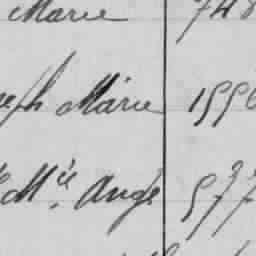 Marie 748
eph Marie 1556
Mie Ange 577